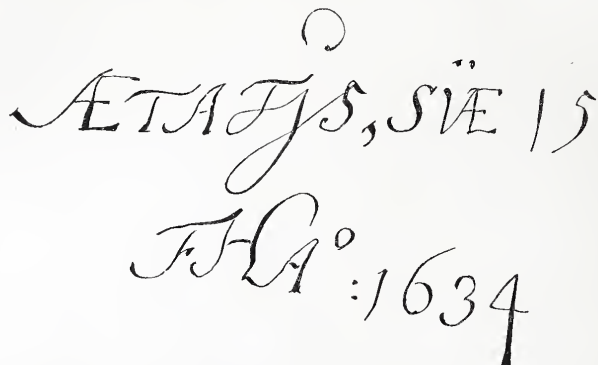 ÆTATJS, SVÆ 15
FHA°:1634